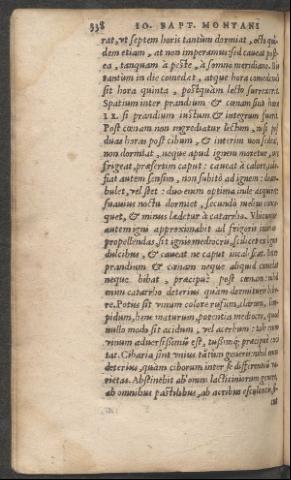 338 IO. BAPT. MONTANI
rat, vt septem horis tantùm dormiat, octo qui-
dem etiam, at non imperamus: sed caueat post-
ea, tanquam à peste, à somno meridiano. Bis
tantùm in die comedat, atque hora comedendi
sit hora quinta, postquàm lecto surrexerit.
Spatium inter prandium & cœnam sint horæ
si prandium iustum & integrum fuerit.
Post cœnam non ingrediatur lectum, nisi post
duas horas post cibum, & interim non
non dormiat, neque apud ignem moretur,
frigeat, præsertim caput: caueat à calore,
fiat autem sensim, non subitò ad ignem: deam-
bulet, vel stet: duo enim optima inde
suauius noctu dormiet, secundò melius conco-
quet, & minus lædetur à catarrho. Vbicunque
autem igni approximabit ad frigoris
propellendas, sit ignis mediocris, scilicet ex lignis
dulcibus, & caueat ne caput incalescat. Inter
prandium & cœnam neque aliquid comedat
neque bibat, præcipuè post cœnam: nihil
enim catarrho deterius quàm dormiturũ bibe-
re. Potus sit vinum colore rufum, clarum, lim-
pidum, bene maturum, potentia mediocri, quod
nullo modo sit acidum, vel acerbum: tale enim
vinum aduersissimũ est, tussimq́; præcipuè exci-
tat. Cibaria sint vnius tãtùm generis: nihil enim
deterius, quàm ciborum inter se differentiũ va-
rietas. Abstinebit ab omni lacticiniorum genere,
ab omnibus pastillibus, ab acribus esculentis,